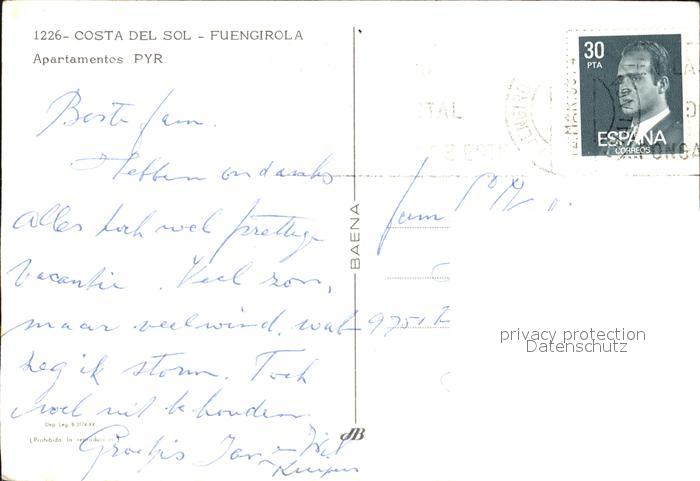 1226- COSTA DEL SOL - FUENGIROLA
Apartamentos PYR
Beste fam.
Hebben ondanks
alles toch wel prettige
vacantie. Veel zon,
maar veel wind, wat
zeg ik storm. Toch
wel uit te houden.
Groetjes Jan en Wil
Kuipers
Dep. Leg. B.
(Prohibida la reproducción)
BAENA
JB
30
PTA
ESPAÑA
CORREOS
fam
9751
privacy protection
Datenschutz